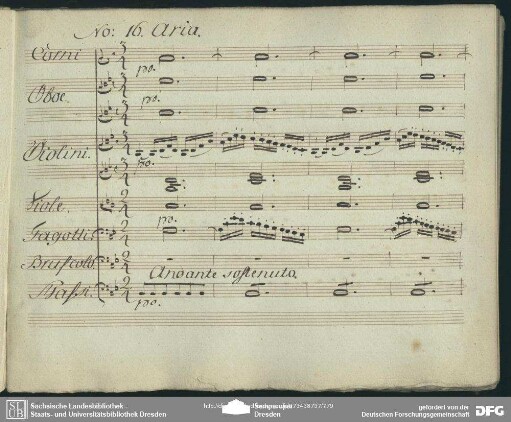 No: 16. Aria.
Corni
po.
Oboe.
po.
Violini.
po.
Viole.
po.
Fagotti.
Bruscolo
Andante sostenuto.
Bassi.
po.
Sächsische Landesbibliothek
Staats- und Universitätsbibliothek Dresden
Dresden
gefördert von der
Deutschen Forschungsgemeinschaft
DFG